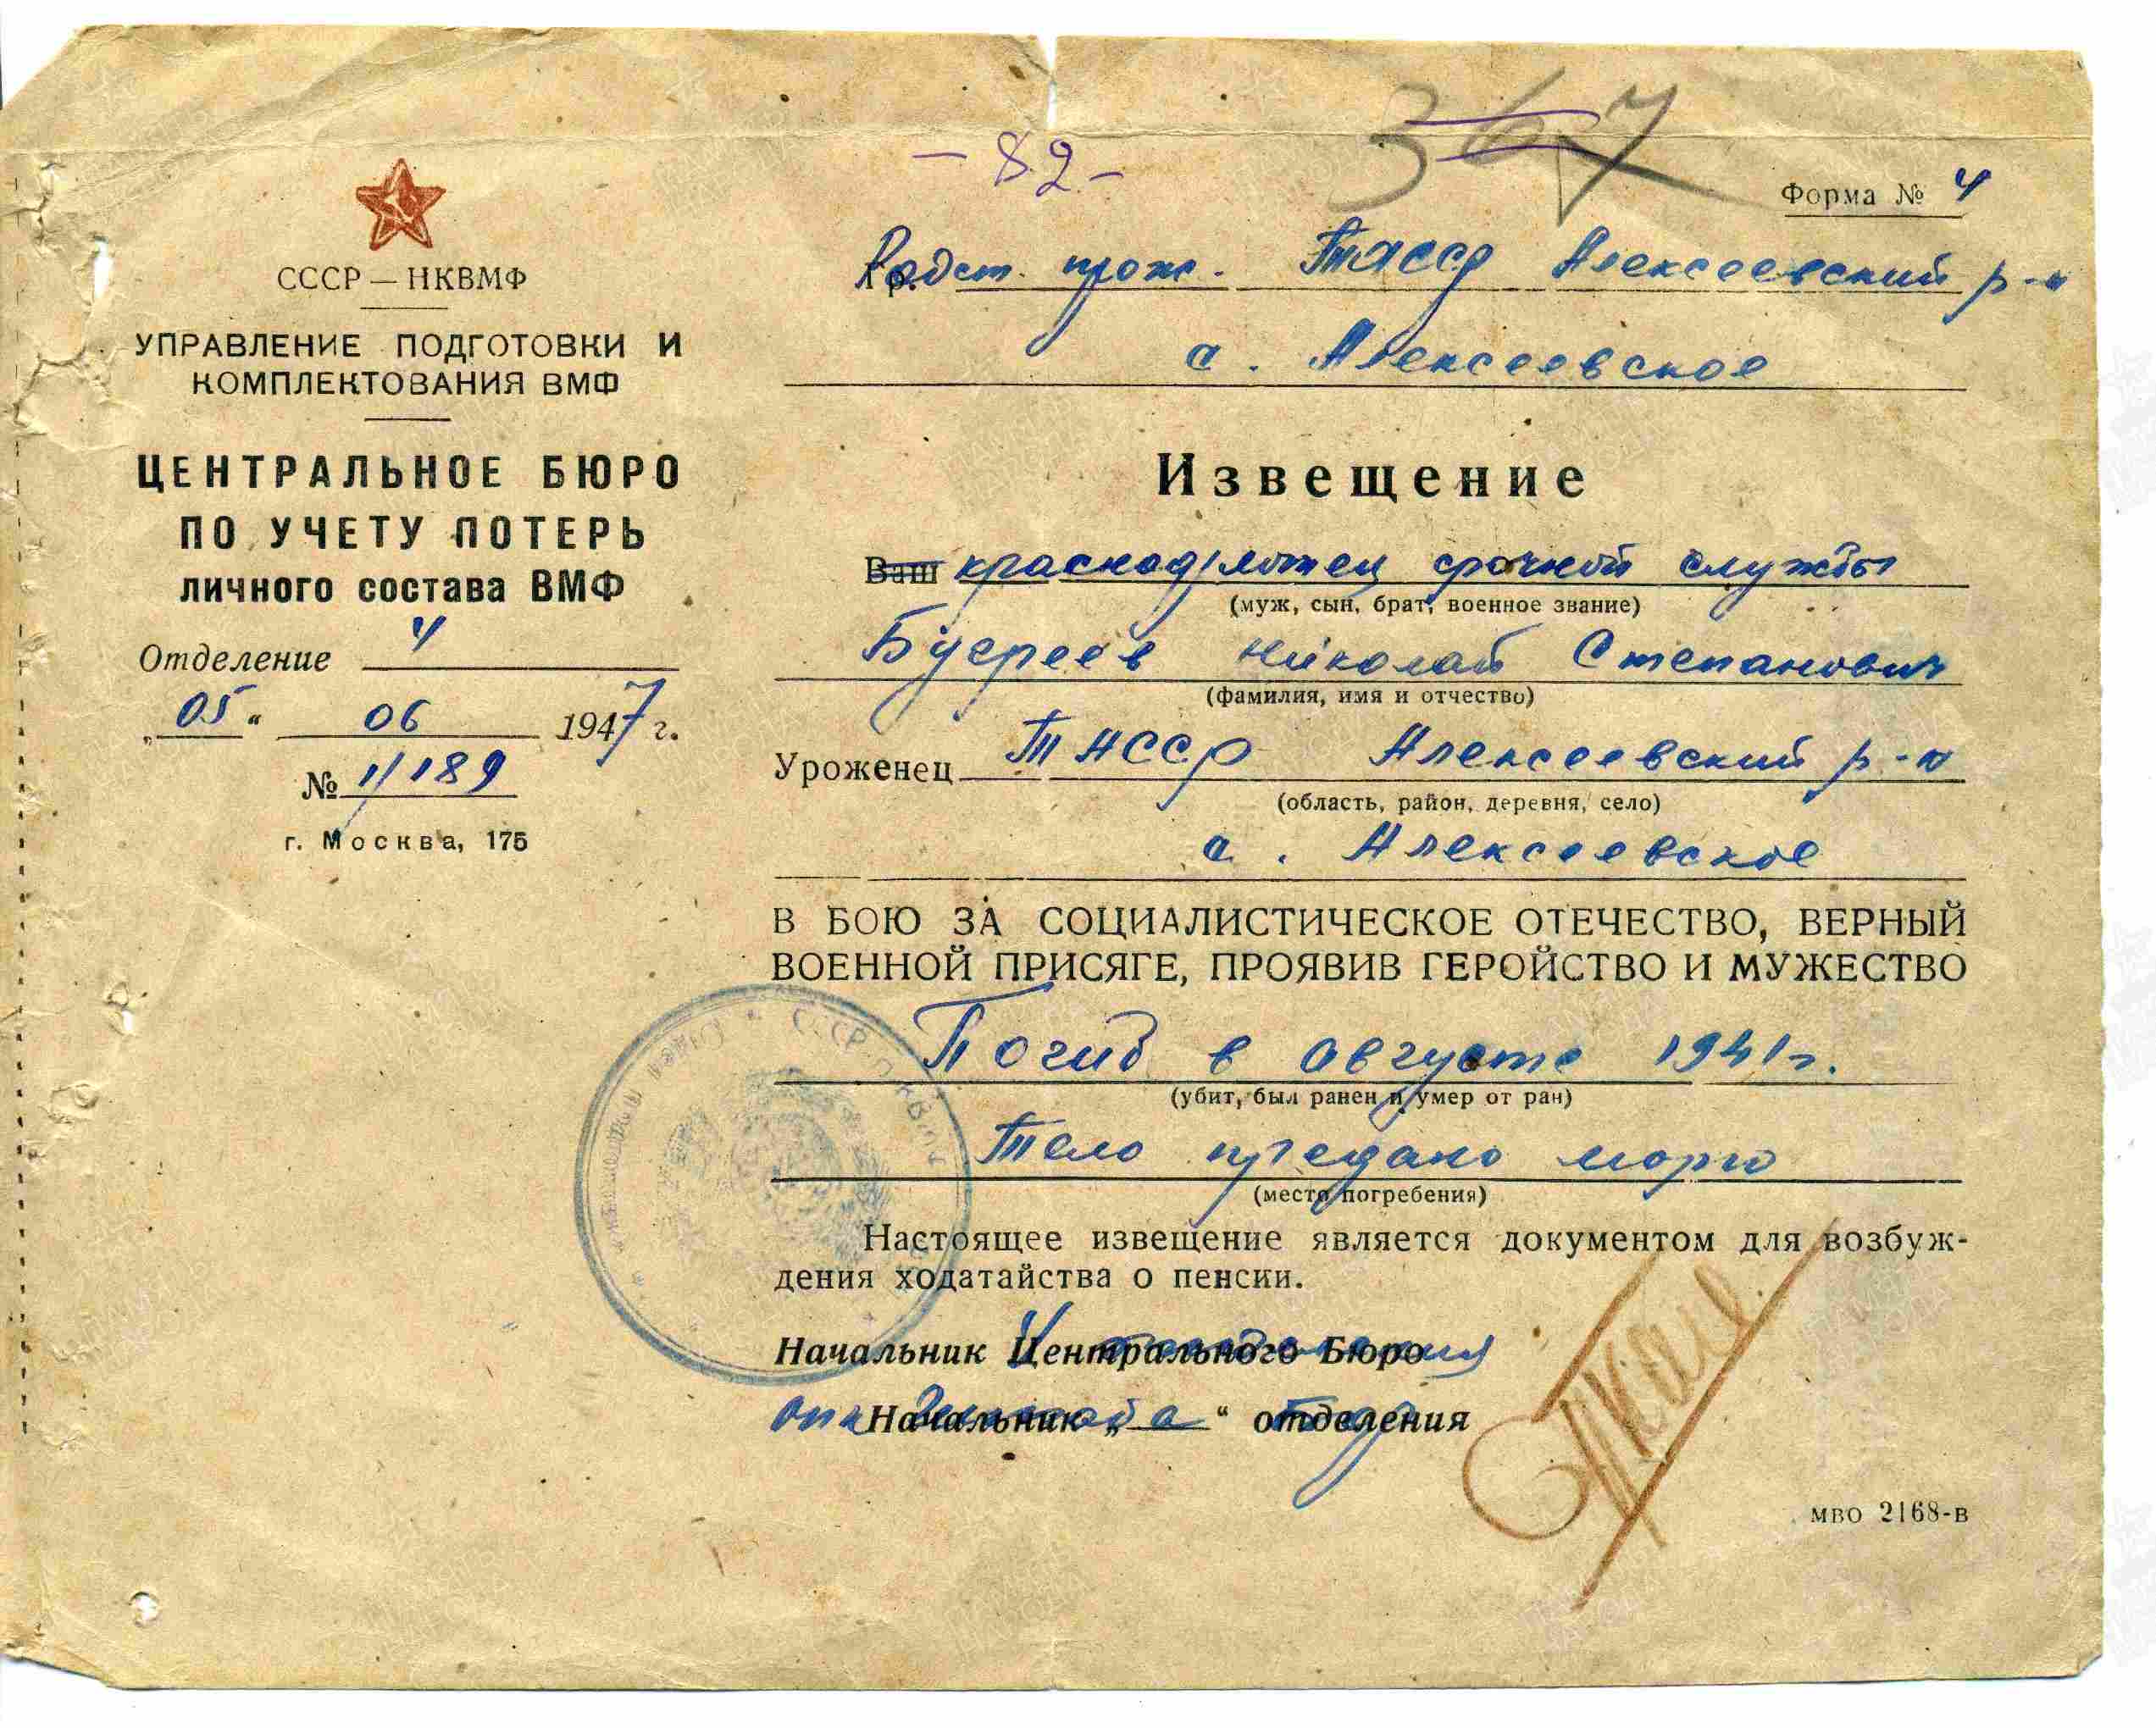 - 82 -
367
Форма № 4
Родст. прож. ТАССР Алексеевский р-н
с. Алексеевское
СССР — НКВМФ
УПРАВЛЕНИЕ ПОДГОТОВКИ И
КОМПЛЕКТОВАНИЯ ВМФ
ЦЕНТРАЛЬНОЕ БЮРО
ПО УЧЕТУ ПОТЕРЬ
личного состава ВМФ
Отделение 4
„05“ 06 1947 г.
№ 1/189
г. Москва, 175
Извещение
Ваш краснофлотец срочной службы
(муж, сын, брат, военное звание)
Николай Степанович
(фамилия, имя и отчество)
Уроженец ТАССР Алексеевский р-н
(область, район, деревня, село)
с. Алексеевское
В БОЮ ЗА СОЦИАЛИСТИЧЕСКОЕ ОТЕЧЕСТВО, ВЕРНЫЙ
ВОЕННОЙ ПРИСЯГЕ, ПРОЯВИВ ГЕРОЙСТВО И МУЖЕСТВО
Погиб в августе 1941 г.
(убит, был ранен и умер от ран)
Тело предано морю
(место погребения)
Настоящее извещение является документом для возбуж-
дения ходатайства о пенсии.
Начальник Центрального Бюро
Начальник „ “ отделения
МВО 2168-в